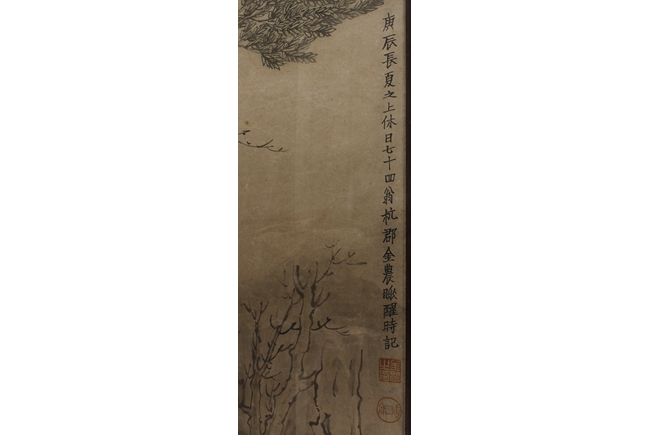 庚辰長夏之上休日七十四翁杭郡金農睡醒時記